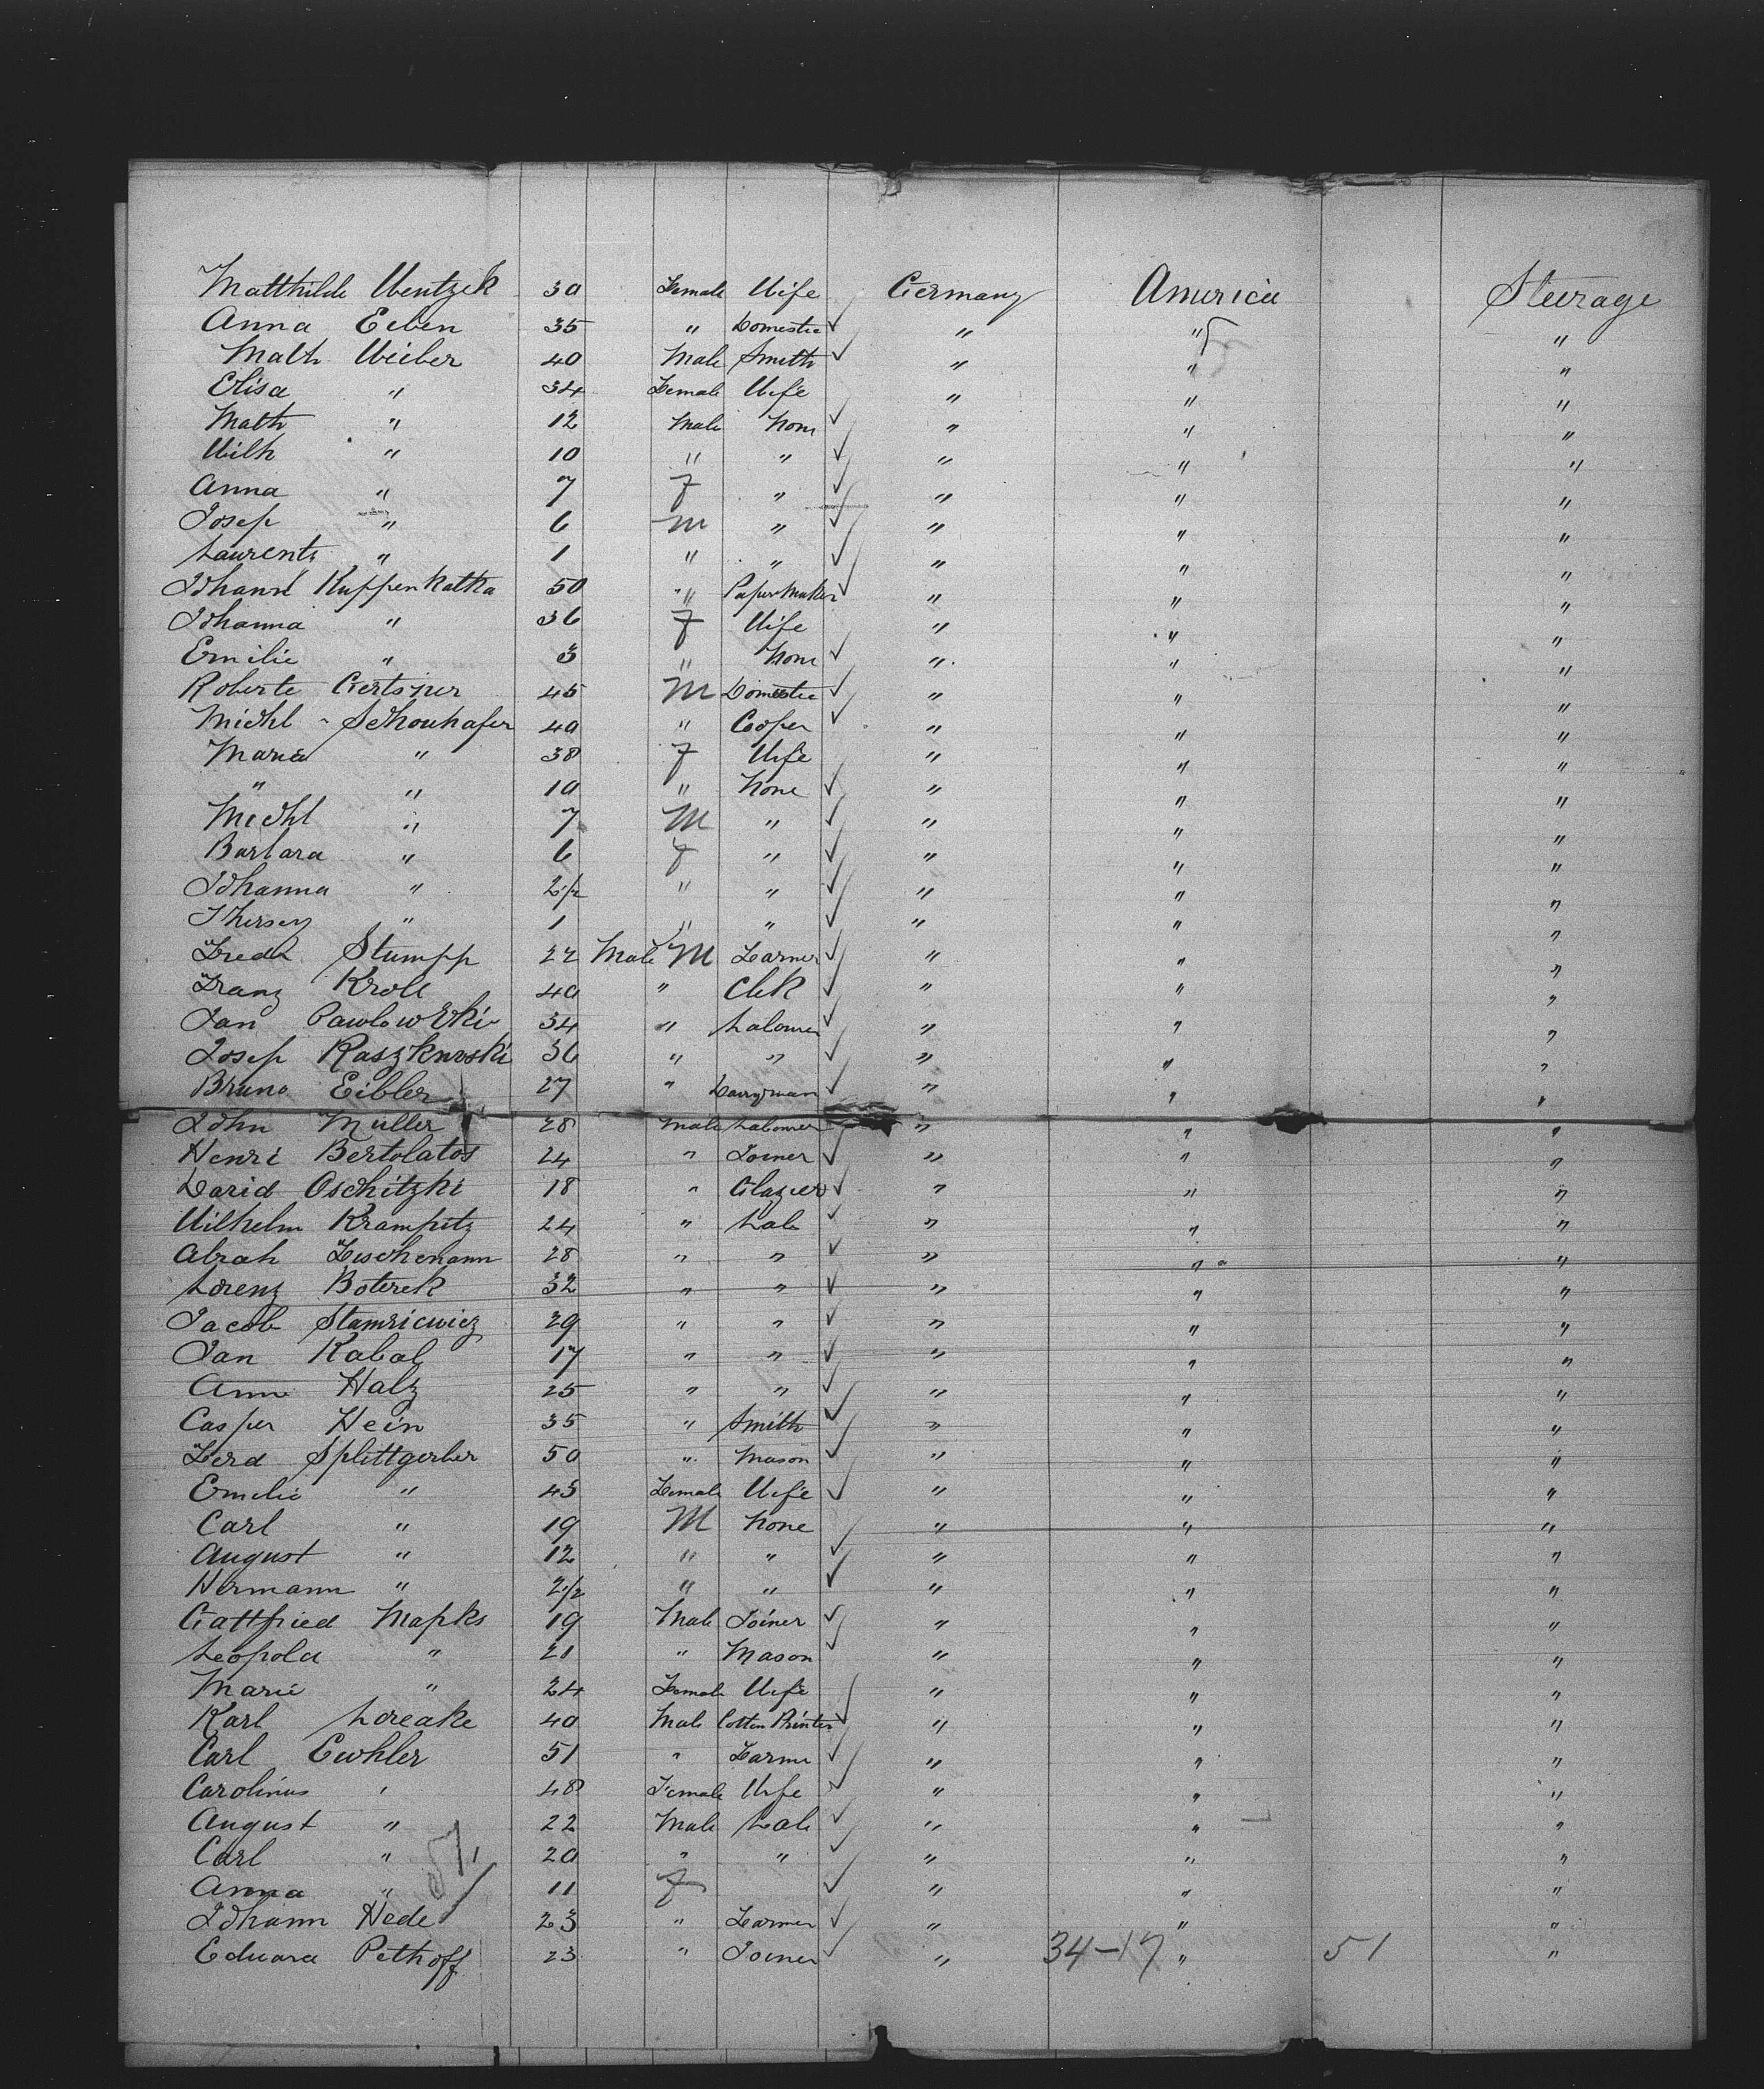 Matthilde Wentzek 30 Female Wife Germany America Steerage
Anna Eeben 35 " Domestic " " "
Math Weiber 40 Male Smith " " "
Elisa " 34 Female Wife " " "
Math " 12 Male None " " "
Wilh " 10 " " " " "
Anna " 7 F " " " "
Josep " 6 M " " " "
Laurentz " 1 " " " " "
Johann Kuppenkatka 50 " Paper Maker " " "
Johanna " 36 F Wife " " "
Emilie " 3 " None " " "
Roberte 45 M Domestic " " "
Michl Schouhafer 40 " Cooper " " "
Maria " 38 F Wife " " "
" " 10 " None " " "
Michl " 7 M " " " "
Barbara " 6 F " " " "
Johanna " 2 1/2 " " " " "
Thersey " 1 " " " " "
Fredk Stumpp 22 Male M Farmer " " "
Franz Kroll 40 " Clek " " "
Jan Pawlowski 34 " Labourer " " "
Josep Raszknoski 36 " " " " "
Bruno Eibler 27 " Dairyman " " "
John Müller 28 Male Labourer " " "
Henri Bertolatos 24 " Joiner " " "
David Oschitzki 18 " Glazier " " "
Wilhelm Krampitz 24 " Lab " " "
Abrah Fischemann 28 " " " " "
Lorenz Boterek 32 " " " " "
Jacob Stamricwicz 29 " " " " "
Jan Kabal 17 " " " " "
Ann Halz 25 " " " " "
Casper Hein 35 " Smith " " "
Ferd Splittgerber 50 " Mason " " "
Emilie " 45 Female Wife " " "
Carl " 19 M None " " "
August " 12 " " " " "
Hermann " 2 1/2 " " " " "
Gattfried Mapks 19 Male Joiner " " "
Leopold " 21 " Mason " " "
Marie " 24 Female Wife " " "
Karl Loreake 40 Male Cotton Printer " " "
Carl Ewhler 51 " Farme " " "
Carolinus " 48 Female Wife " " "
August " 22 Male Lab " " "
Carl " 20 " " " " "
Anna " 11 F " " "
Johann Hede 23 " Farmer " " "
Eduard Pethoff 23 " Joiner " 34-17 " 51 "